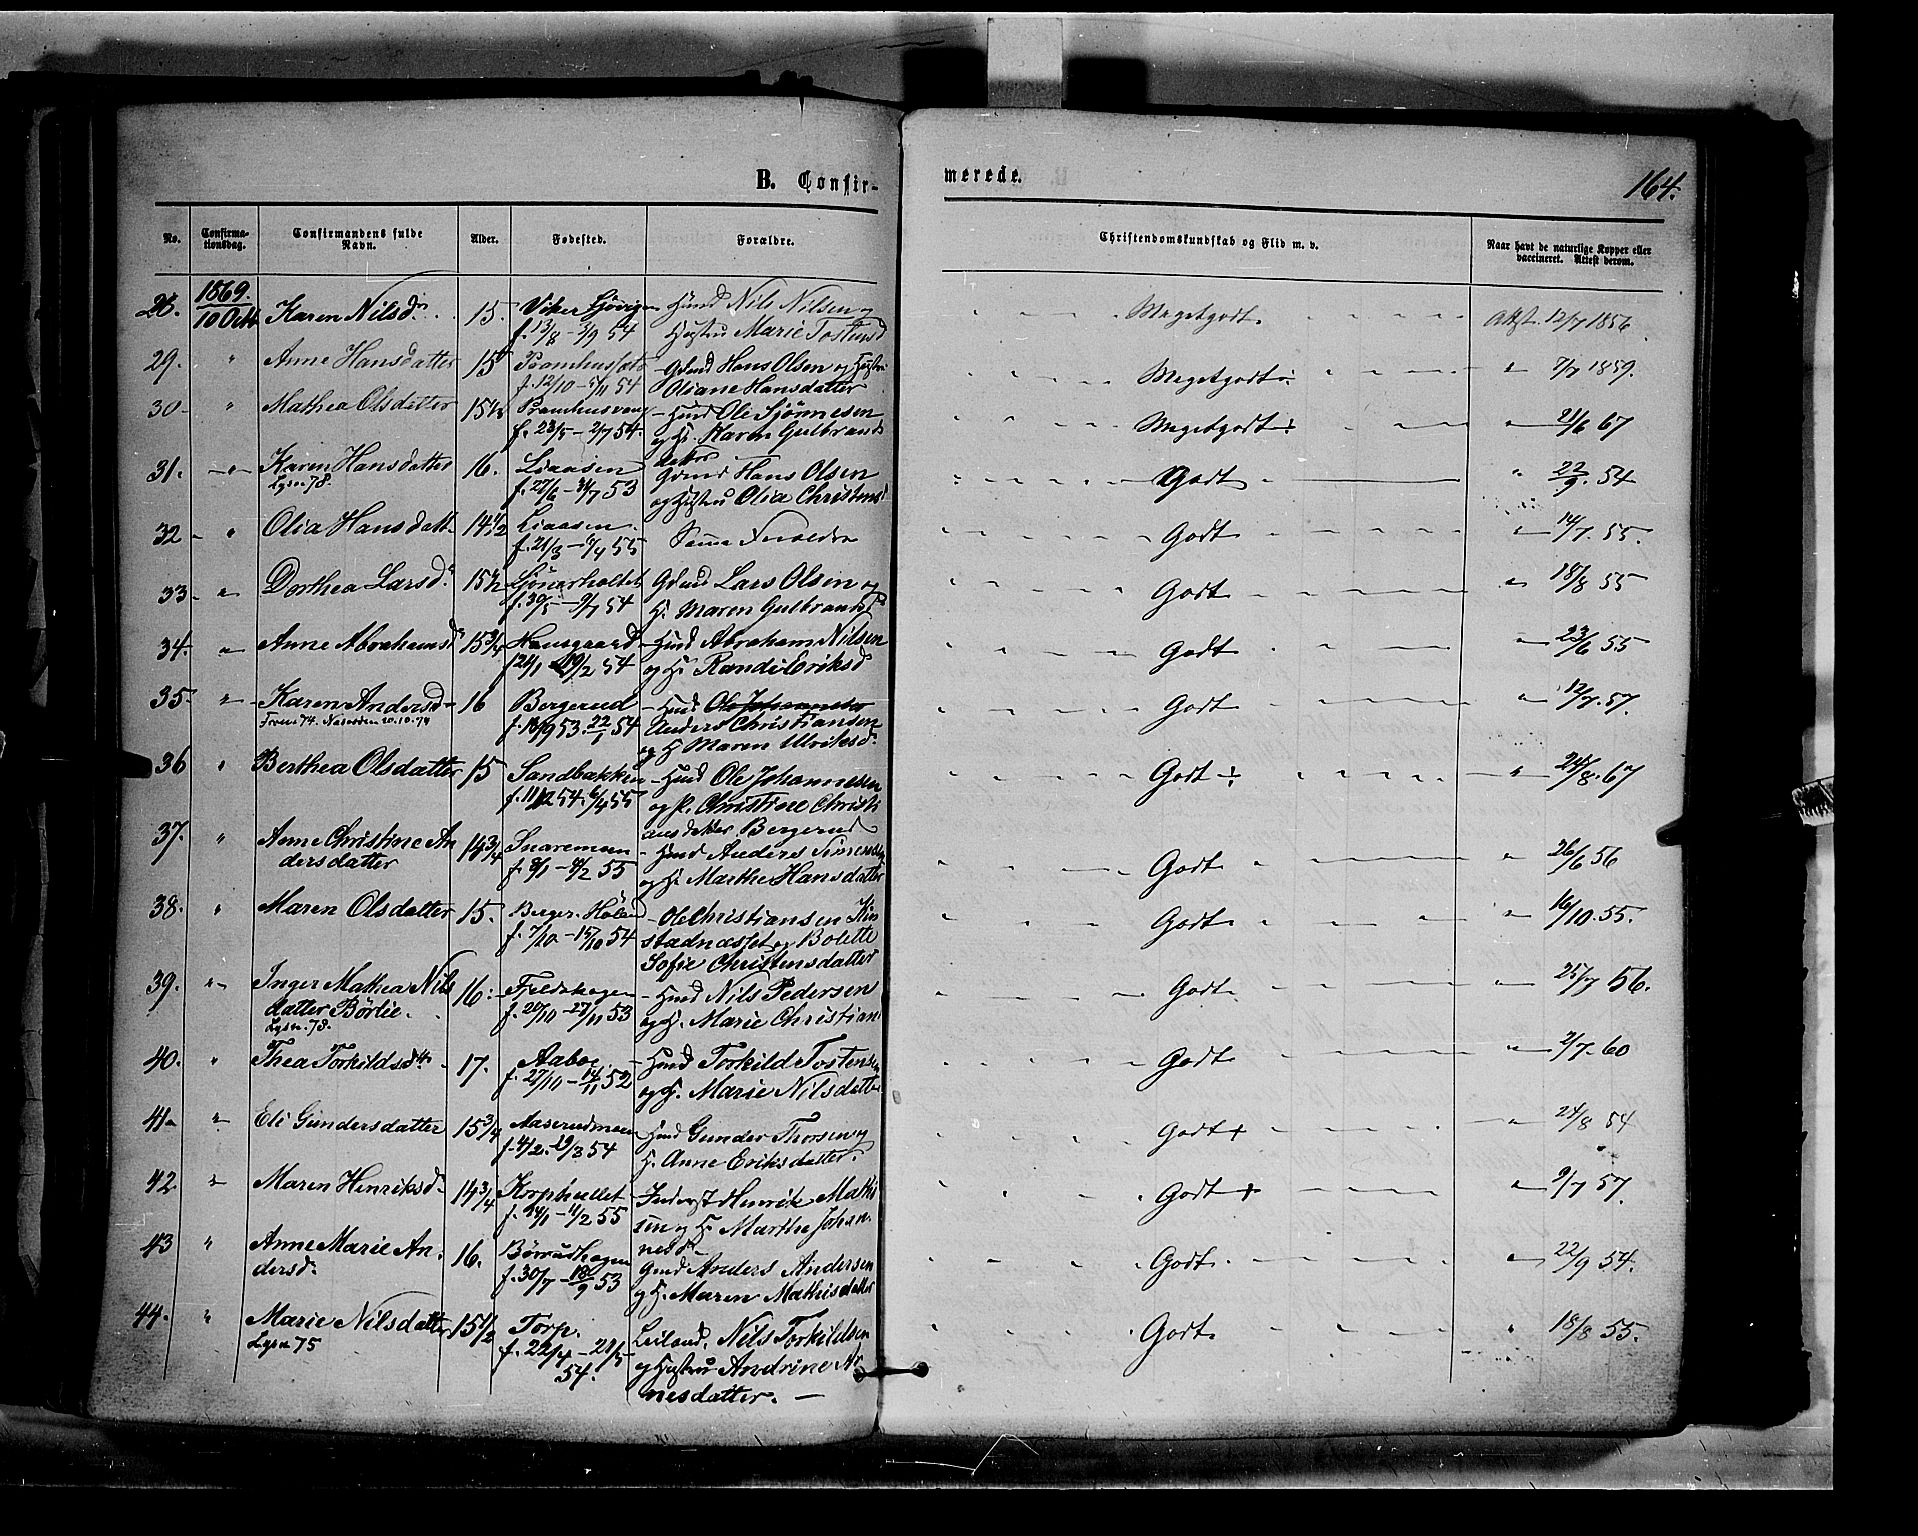 B. Confir-
merede.
164.
No.
Confirma-
tionsdag.
Confirmandens fulde
Navn.
Alder.
Fødested.
Forældre.
Christendomskundskab og Flid m. v.
Naar havt de naturlige Kopper eller
vaccineret. Attest derom.
1869.
28. 10 Octb Karen Nilsd. 15. Viker Husmd Nils Nilsen og Megetgodt Attst. 12/7 1856
f. 13/8 - 3/9 54 Hustru Marie Tostensd
29. " Anne Hansdatter 15 Gdmd Hans Olsen og Hustru Megetgodt " 7/7 1859.
f. 12/10 - 5/11 54 Oliane Hansdatter
30 - " Mathea Olsdatter 15 1/2 - Husmd Ole Megetgodt " 21/6 67
f. 23/5 - 2/7 54. og H. Karen Gulbrands
datter
31. - " Karen Hansdatter 16. Liaasen Gdmd Hans Olsen Godt " 22/9. 54
Lysn. 78. f. 27/6 - 31/7 53 og Hustru Olia Christensd
32 - " Olia Hansdatt. 14 1/2 Liaasen. Samme Forældre Godt " 14/7. 55.
f. 21/3 - 9/4 55
33 - " Dorthea Larsd. 15 1/2 Gdmd Lars Olsen og Godt " 18/8 55
f. 30/5 - 9/7 54 H. Maren Gulbrandsd
34. " Anne Abrahamsd 15 3/4 - Husmd Abraham Nilsen Godt " 23/6 55
f 21/1 - 19/2 54 og H. Randi Eriksd
35 - " Karen Andersd - 16 Bergerud - Husmd Ole Johannesen Godt " 12/7. 57.
74. 20.10.74 f. 18/9 53. 22/1 54 Anders Christiansen
og H Maren Ulriksd.
36 " Berthea Olsdatter 15 Sandbakken - Husmd Ole Johannesen Godt " 24/8. 67
f. 11/12 54. 6/4 55 og H. Christine Christi
ansdatter Bergerud
37. " Anne Christine An 14 3/4 Snaremoen - Husmd Anders Simensen Godt " 26/6 56
dersdatter f. 8/1 - 4/2 55 og H. Marthe Hansdatter
38. " Maren Olsdatter 15. Berger. - Ole Christiansen Godt " 16/10. 55.
f. 7/10 - 15/10 54 og Bolette
Sofie Christensdatter
39. " Inger Mathea Nils 16. - Husmd Nils Pedersen Godt " 25/7 56.
datter Børlie. f. 20/10 - 27/11 53 og H. Marie Christian
Lysn. 78.
40. " Thea Torkildsd. 17. Aaboe - Husmd Torkild Tostensen Godt " 2/7. 60
f. 27/10 - 14/11 52 og H. Marie Nilsdatter
41. " Eli Gundersdatter 15 3/4 Aaserudmoen Husmd Gunder Thorsen og Godt " 24/8 54
f. 4/2. - 19/3 54 H. Anne Eriksdatter.
42. " Maren Henriksd. 14 3/4 Henrik Mathi Godt " 9/7 57.
f. 14/1 - 11/2 55 sen og H. Marthe Johan
nesd
43 " Anne Marie An. 16. Gmd Anders Andersen Godt " 22/9 54.
dersd. f. 30/7 - 18/9 53 og H. Maren Mathisdatter
44. " Marie Nilsdatter 15 1/2 Torp. Leiland. Nils Torkildsen Godt " 18/8 55.
Lysn 75 f. 22/4 - 21/5 og Hustru Andrine Ar
54. nesdatter. -